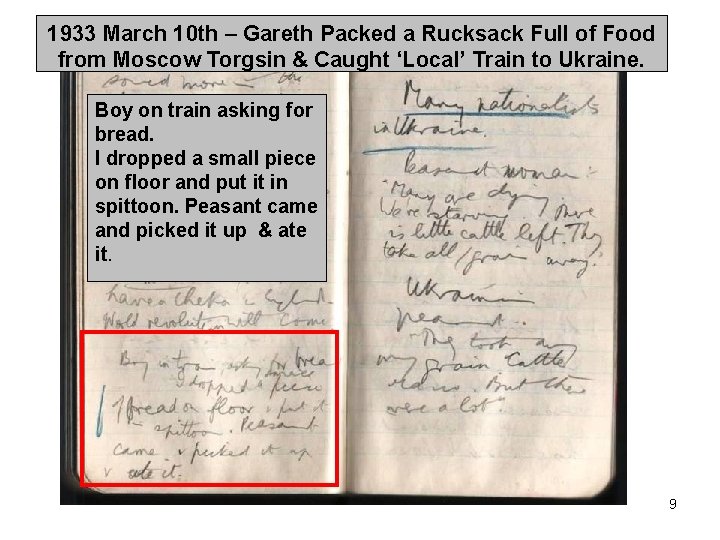 1933 March 10 th – Gareth Packed a Rucksack Full of Food
from Moscow Torgsin & Caught ‘Local’ Train to Ukraine.
Boy on train asking for
bread.
I dropped a small piece
on floor and put it in
spittoon. Peasant came
and picked it up & ate
it.
more in the
have a Cheka in England.
World revolution will come
Boy in train asking for brea
I dropped a piece
of bread on floor & put it
in spittoon. Peasant
came & picked it up
& ate it.
Many nationalists
in Ukraine.
Peasant woman:-
"Many are dying.
We're starving. There
is little cattle left. They
take all grain away."
Ukrainian
peasant.
"They took away
my grain. Cattle
But there
were a lot"
9